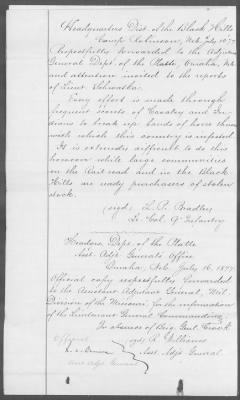 Headquarters Dist. of the Black Hills
Camp Robinson, Neb. July 1877
Respectfully forwarded to the Adjutant
General Dept. of the Platte, Omaha, Neb
and attention invited to the reports
of Lieut Schwatka.
Every effort is made through
frequent scouts of Cavalry and In-
dians to break up bands of horse thieves
with which this country is infested.
It is extremely difficult to do this
however while large communities
on the rail road and in the Black
Hills are ready purchasers of stolen
stock.
(sgd) L. P. Bradley
Lt. Col. 9" Infantry
Headqrs. Dept. of the Platte
Asst. Adjt. General's Office
Omaha, Neb. July 16, 1877
Official copy respectfully forwarded
to the Assistant Adjutant General, Mil.
Division of the Missouri, for the information
of the Lieutenant General Commanding.
In absence of Brig. Genl. Crook
(sgd) R. Williams
Asst. Adjt. General
Official
Asst Adjt General